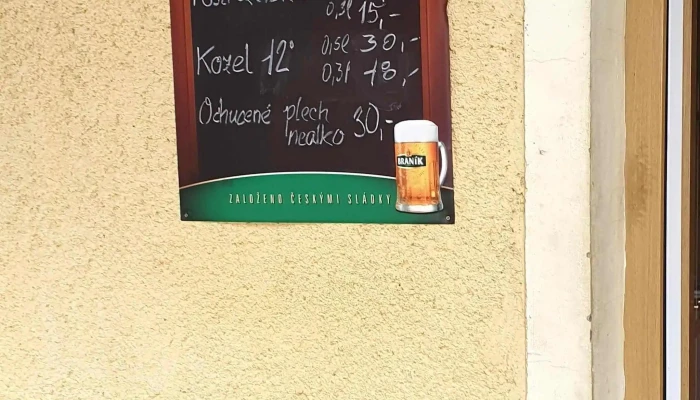 0,3l 15,-
Kozel 12° 0,5l 30,-
0,3l 18,-
Ochucené plech 30,-
nealko
BRANÍK
ZALOŽENO ČESKÝMI SLÁDKY